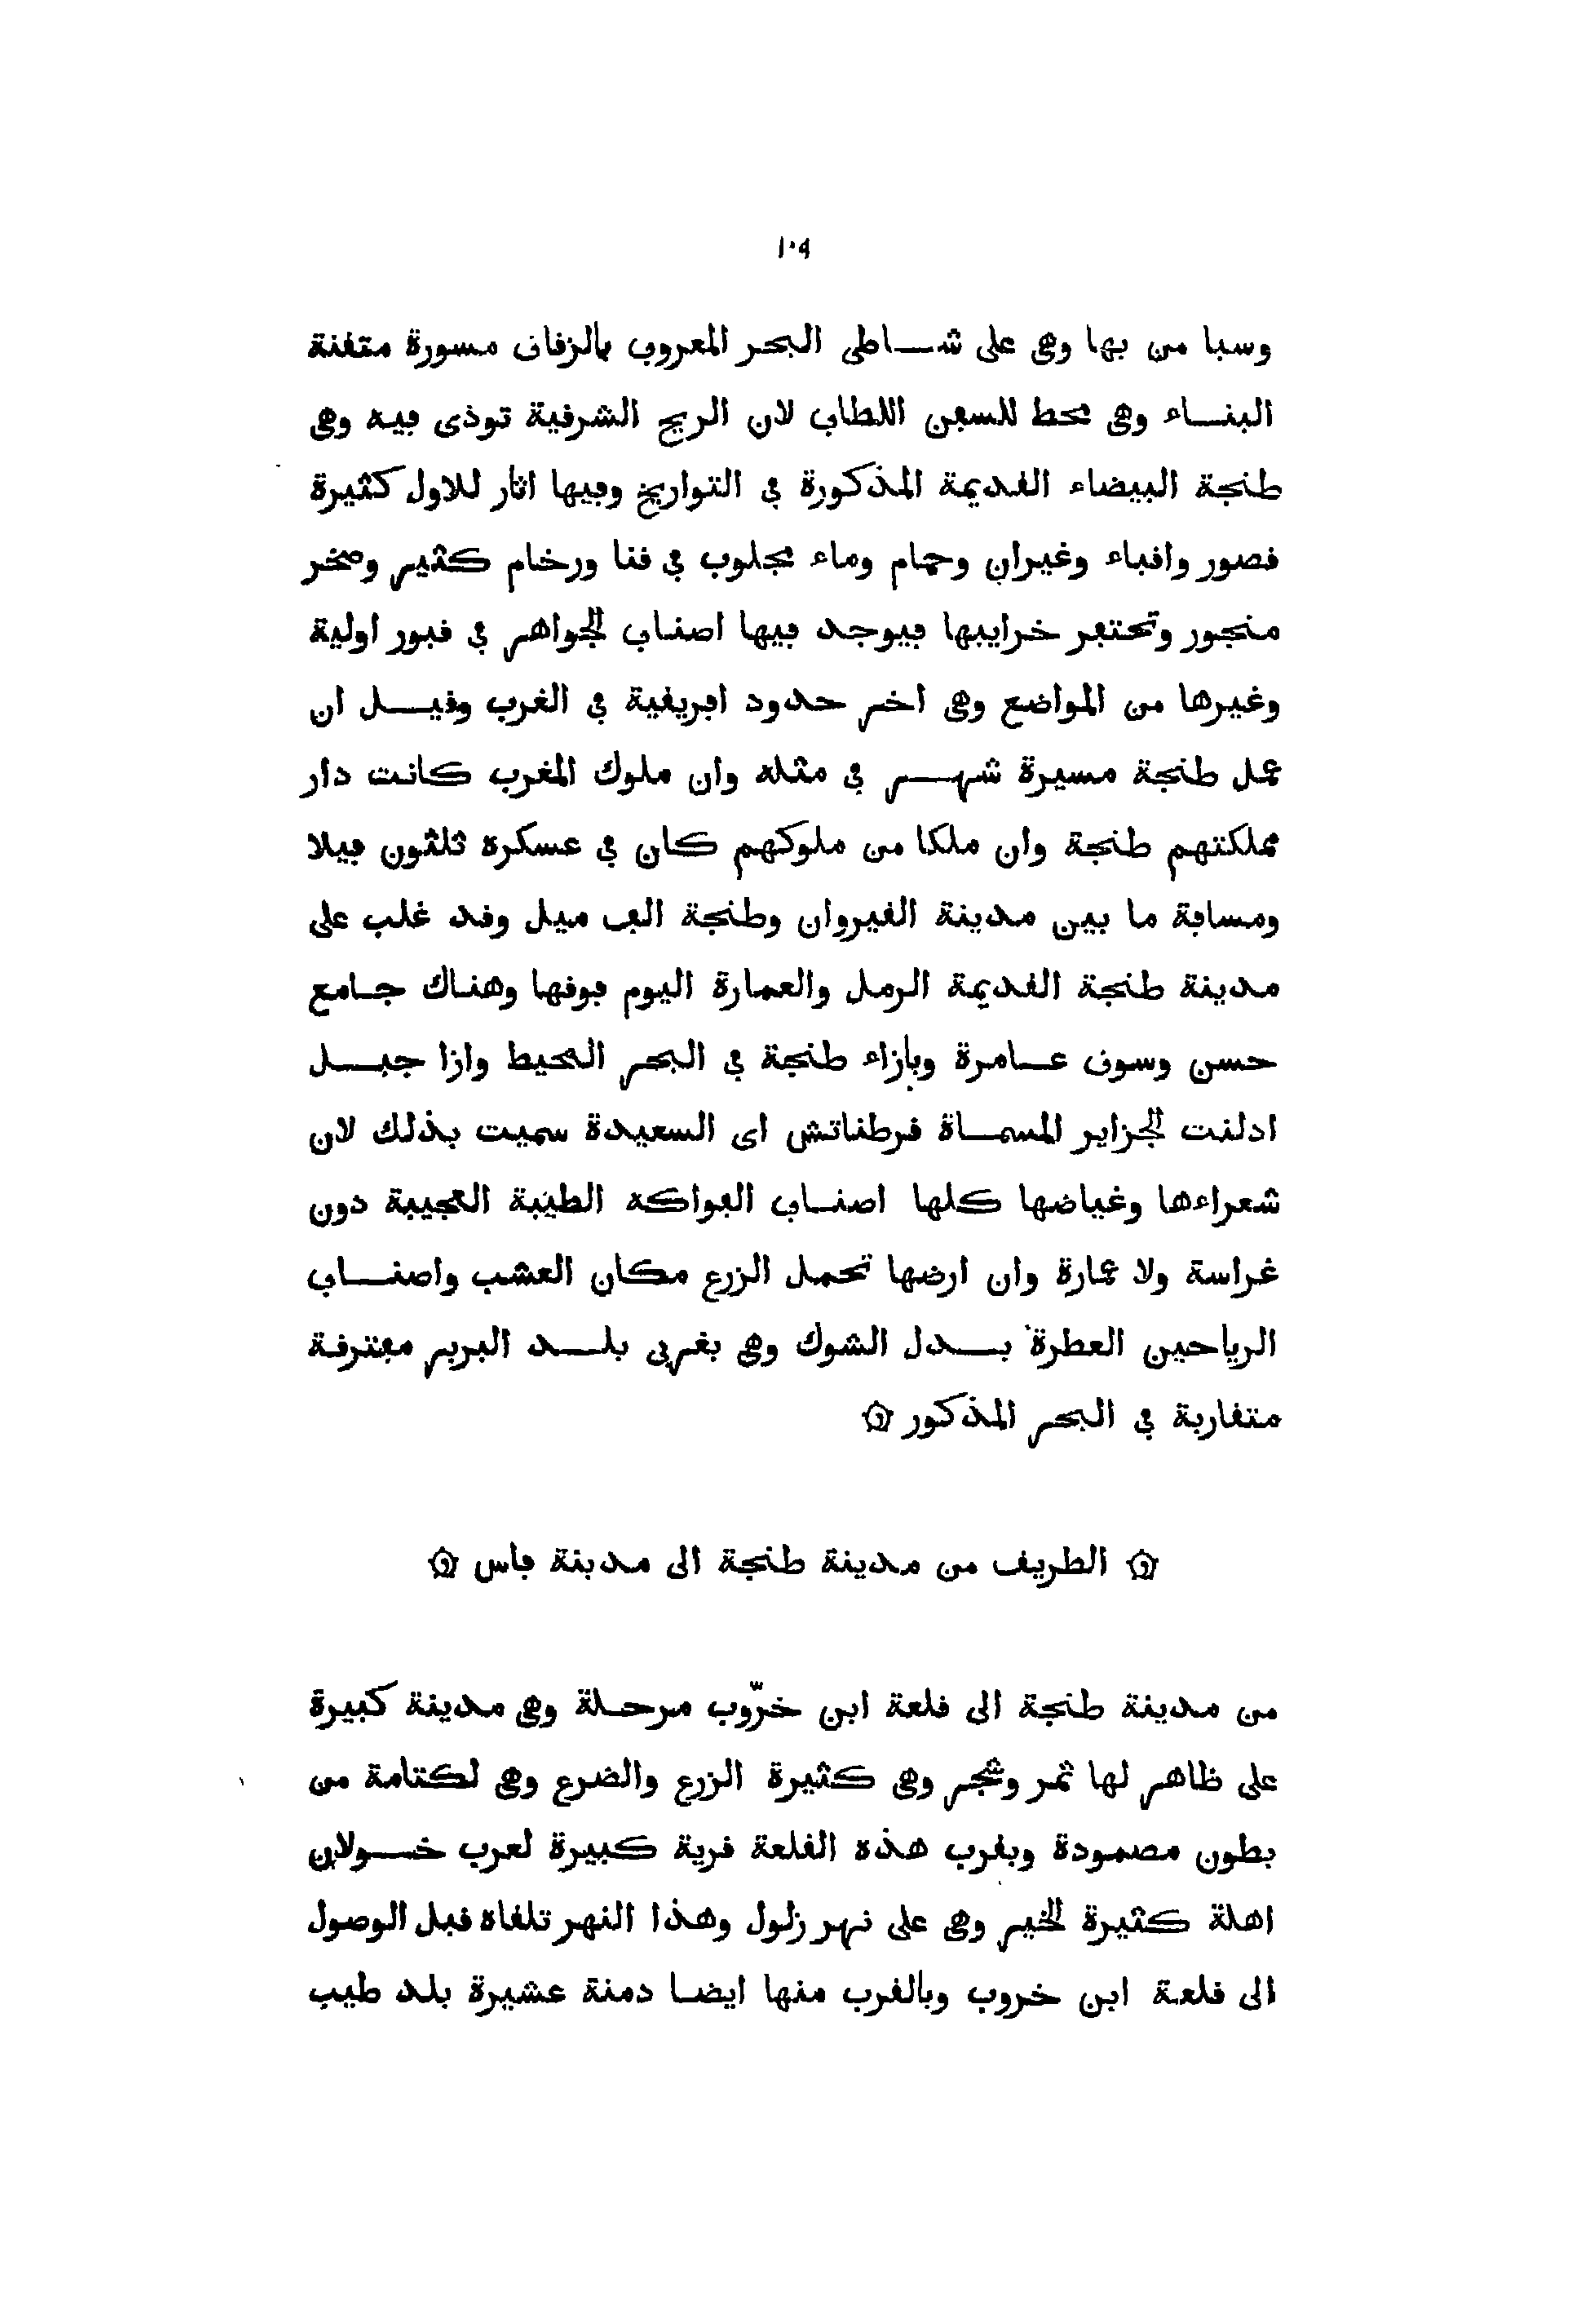 ١٠٩
وسبا من بها وهى على شاطى البحر المعروف بالزقاق مسورة متقنة
البناء وهى محط للسفن اللطاف لان الريح الشرقية توذى فيه وهى
طنجة البيضاء القديمة المذكورة فى التواريخ وفيها اثار للاول كثيرة
قصور واقباء وغيران وحمام وماء مجلوب فى قنا ورخام كثير وصخر
منجور وتحتفر خرايبها فيوجد فيها اصناف الجواهر فى قبور اولية
وغيرها من المواضع وهى اخر حدود افريقية فى الغرب وقيل ان
عمل طنجة مسيرة شهر فى مثله وان ملوك المغرب كانت دار
مملكتهم طنجة وان ملكا من ملوكهم كان فى عسكره ثلثون فيلا
ومسافة ما بين مدينة القيروان وطنجة الف ميل وقد غلب على
مدينة طنجة القديمة الرمل والعمارة اليوم فوقها وهناك جامع
حسن وسوق عامرة وبازاء طنجة فى البحر المحيط وازا جبل
ادلنت الجزاير المسماة فرطناتش اى السعيدة سميت بذلك لان
شعراءها وغياضها كلها اصناف الفواكه الطيبة العجيبة دون
غراسة ولا عمارة وان ارضها تحمل الزرع مكان العشب واصناف
الرياحين العطرة بدل الشوك وهى بغربى بلد البربر مفترقة
متقاربة فى البحر المذكور ۞
۞ الطريق من مدينة طنجة الى مدينة فاس ۞
من مدينة طنجة الى قلعة ابن خرّوب مرحلة وهى مدينة كبيرة
على ظاهر لها ثمر وشجر وهى كثيرة الزرع والضرع وهى لكتامة من
بطون مصمودة وبغرب هذه القلعة قرية كبيرة لعرب خولان
اهلة كثيرة الخير وهى على نهر زلول وهذا النهر تلقاه قبل الوصول
الى قلعة ابن خروب وبالقرب منها ايضا دمنة عشيرة بلد طيب